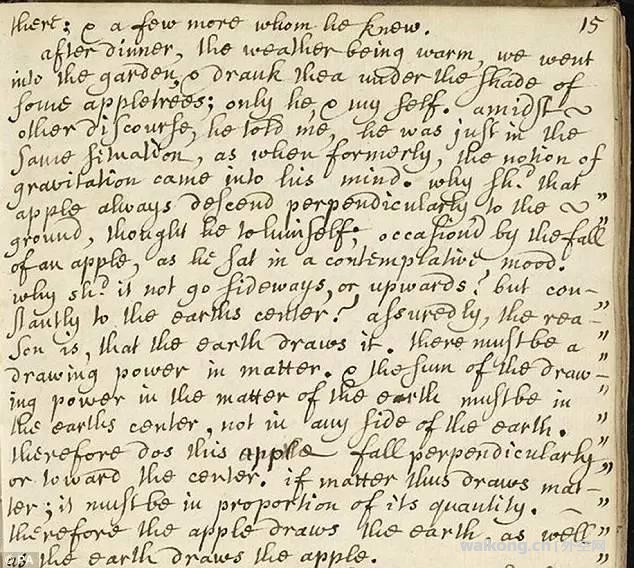 there; & a few more whom he knew. 15
after dinner, the weather being warm, we went
into the garden, & drank thea under the shade of
some appletrees; only he, & my self. amidst
other discourse, he told me, he was just in the
same situation, as when formerly, the notion of
gravitation came into his mind. why sh.d that
apple always descend perpendicularly to the ~ "
ground, thought he to himself; occasion'd by the fall
of an apple, as he sat in a contemplative mood.
why sh.d it not go sideways, or upwards? but con-
stantly to the earths center? assuredly, the rea- "
son is, that the earth draws it. there must be a "
drawing power in matter. & the sum of the draw- "
ing power in the matter of the earth must be in "
the earths center, not in any side of the earth. "
therefore dos this apple fall perpendicularly "
or toward the center. if matter thus draws mat- "
ter; it must be in proportion of its quantity. - "
therefore the apple draws the earth, as well "
as the earth draws the apple.
PA
waikong.cn | 外空网